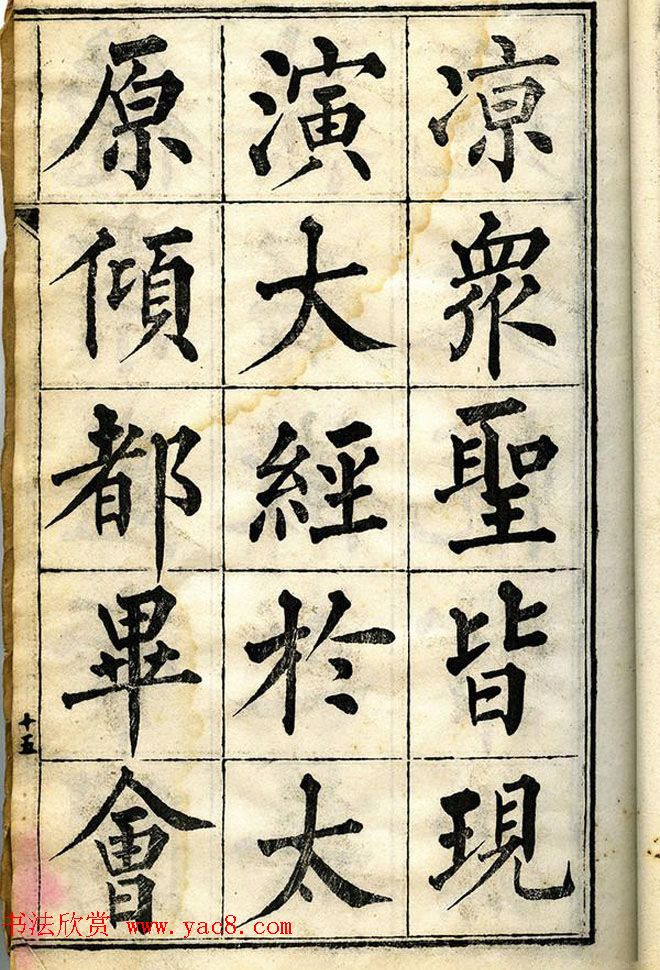 凉衆聖皆現
演大經於太
原傾都畢會
十五
书法欣赏 www.yac8.com